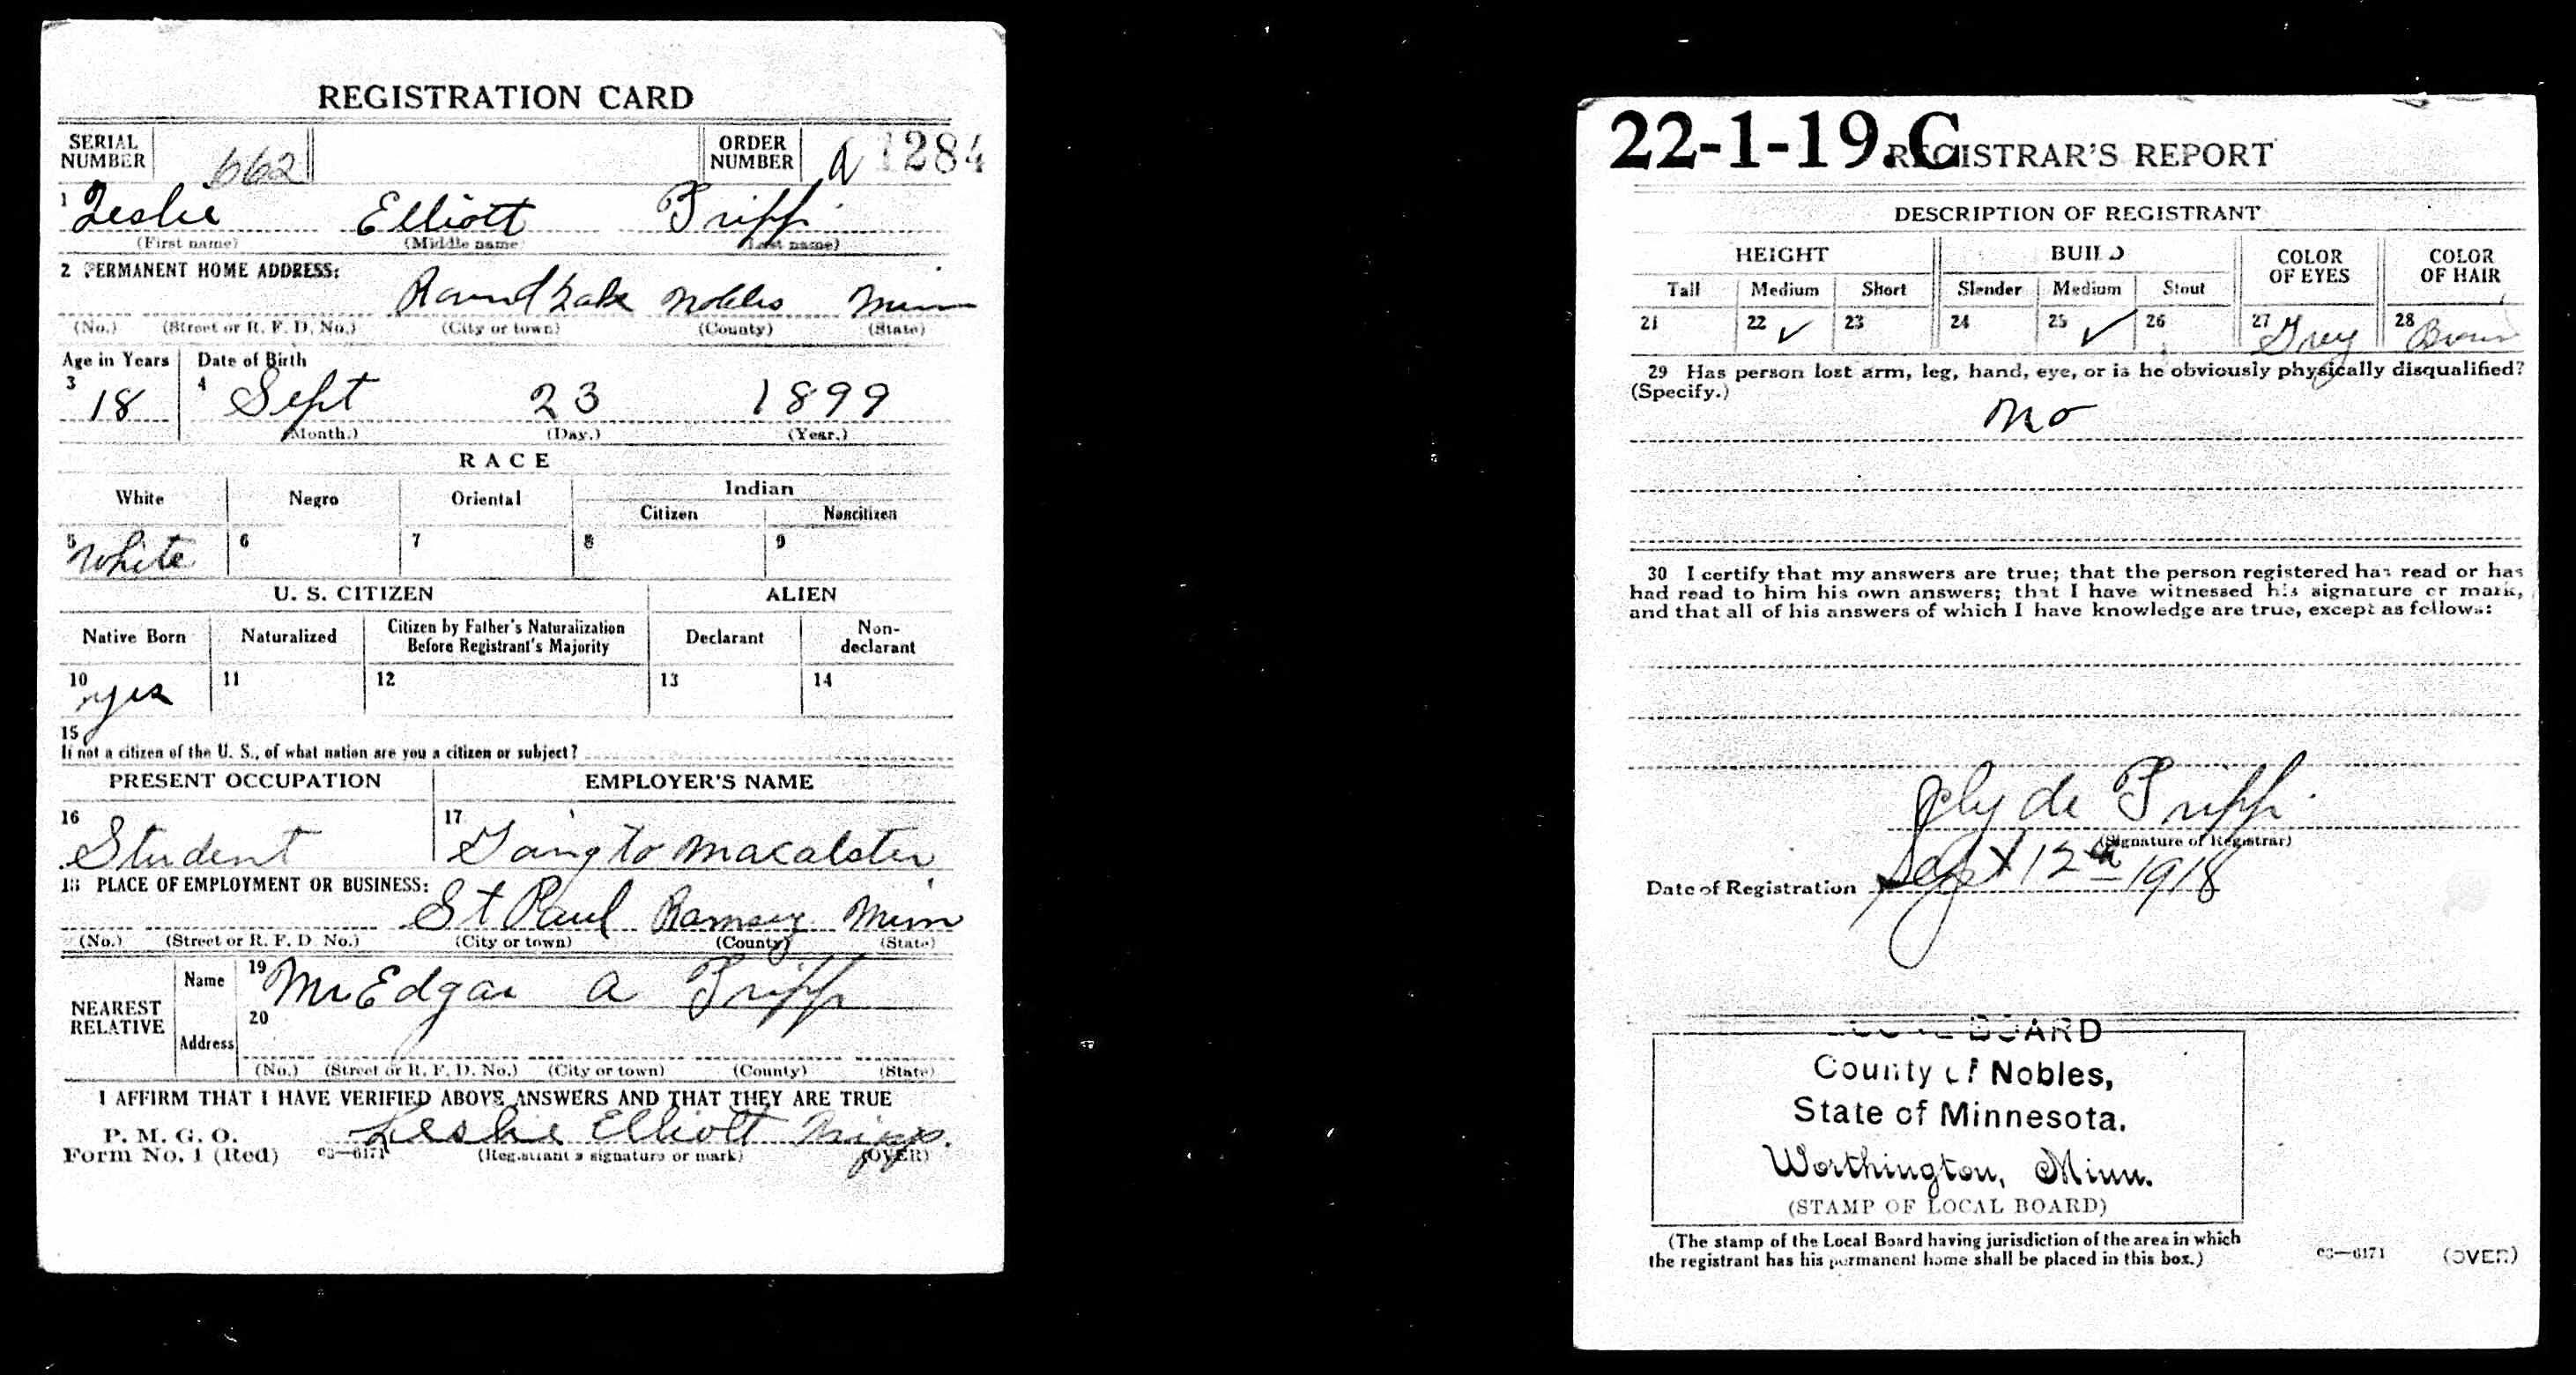 REGISTRATION CARD
SERIAL NUMBER 662 ORDER NUMBER A 1284
1 Leslie Elliott Tripp
(First name) (Middle name) (Last name)
2 PERMANENT HOME ADDRESS:
Round Lake Nobles Minn
(No.) (Street or R. F. D. No.) (City or town) (County) (State)
Age in Years Date of Birth
3 18 4 Sept 23 1899
(Month.) (Day.) (Year.)
RACE
White Negro Oriental Indian
Citizen Noncitizen
5 White 6 7 8 9
U. S. CITIZEN ALIEN
Native Born Naturalized Citizen by Father's Naturalization Before Registrant's Majority Declarant Non-declarant
10 yes 11 12 13 14
15
If not a citizen of the U. S., of what nation are you a citizen or subject?
PRESENT OCCUPATION EMPLOYER'S NAME
16 Student 17 Going to Macalster
18 PLACE OF EMPLOYMENT OR BUSINESS:
St Paul Ramsey Minn
(No.) (Street or R. F. D. No.) (City or town) (County) (State)
NEAREST RELATIVE Name 19 Mr Edgar A Tripp
Address 20
(No.) (Street or R. F. D. No.) (City or town) (County) (State)
I AFFIRM THAT I HAVE VERIFIED ABOVE ANSWERS AND THAT THEY ARE TRUE
P. M. G. O.
Form No. 1 (Red) 03—6171 Leslie Elliott Tripp.
(Registrant's signature or mark) (OVER)
22-1-19.C REGISTRAR'S REPORT
DESCRIPTION OF REGISTRANT
HEIGHT BUILD COLOR OF EYES COLOR OF HAIR
Tall Medium Short Slender Medium Stout
21 22 ✓ 23 24 25 ✓ 26 27 Grey 28 Brown
29 Has person lost arm, leg, hand, eye, or is he obviously physically disqualified?
(Specify.)
no
30 I certify that my answers are true; that the person registered has read or has
had read to him his own answers; that I have witnessed his signature or mark,
and that all of his answers of which I have knowledge are true, except as follows:
Clyde Tripp
(Signature of Registrar)
Date of Registration Sept 12th 1918
LOCAL BOARD
County of Nobles,
State of Minnesota.
Worthington, Minn.
(STAMP OF LOCAL BOARD)
(The stamp of the Local Board having jurisdiction of the area in which
the registrant has his permanent home shall be placed in this box.)
03—6171 (OVER)